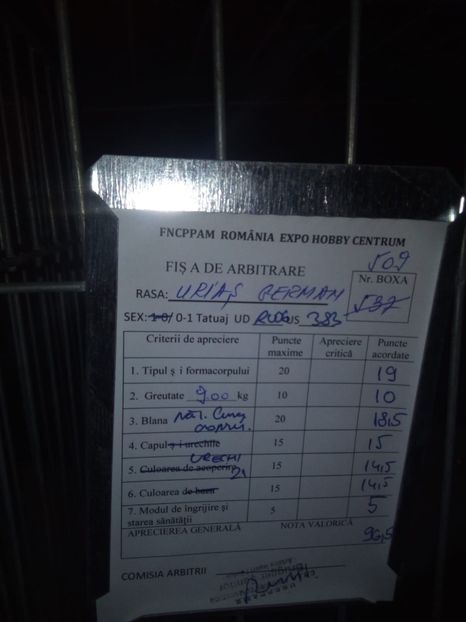 FNCPPAM ROMÂNIA EXPO HOBBY CENTRUM
FIȘ A DE ARBITRARE
509
Nr. BOXA
537
RASA: URIAȘ GERMAN
SEX: 1-0/ 0-1 Tatuaj UD US 383
Criterii de apreciere Puncte maxime Apreciere critică Puncte acordate
1. Tipul ș i formacorpului 20 19
2. Greutate 9,00 kg 10 10
3. Blana 20 18,5
4. Capul ș i urechile 15 15
URECHI
5. Culoarea de acoperire 15 14,5
6. Culoarea de bază 15 14,5
7. Modul de îngrijire și starea sănătății 5 5
APRECIEREA GENERALĂ NOTA VALORICĂ 96,5
COMISIA ARBITRII